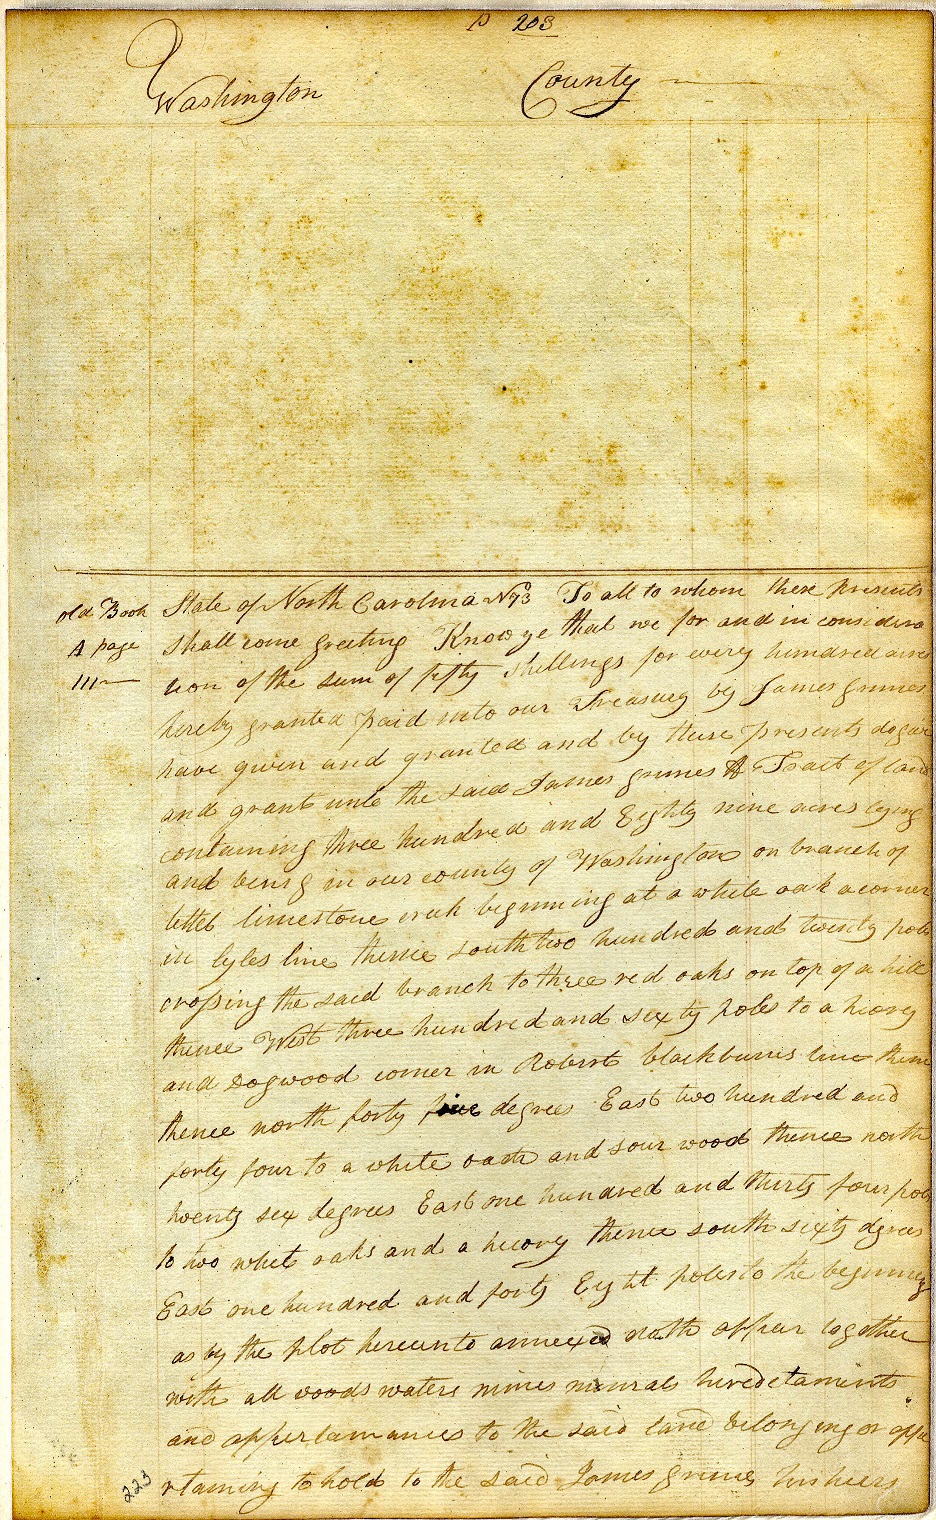 p 203
Washington County
old Book
A page
111
State of North Carolina No 73 To all to whom these presents
shall come greeting Know ye that we for and in considera
tion of the sum of fifty shillings for every hundred acres
hereby granted paid into our Treasury by James grimes
have given and granted and by these presents do give
and grant unto the said James grimes A Tract of land
containing three hundred and Eighty nine acres lying
and being in our county of Washington on branch of
littel limestone creek beginning at a white oak a corner
in lyles line thence south two hundred and twenty poles
crossing the said branch to three red oaks on top of a hill
thence West three hundred and sixty poles to a hicory
and Dogwood corner in Robert blackburns line then
thence north forty five degrees East two hundred and
forty four to a white oack and sour wood thence north
twenty sex degrees East one hundred and thirty four poles
to two whet oaks and a hicory thence south sixty dgrees
East one hundred and forty Eight poles to the beginning
as by the plot hereunto annexed doth appear together
with all woods waters mines minirals heredetaments
and appertainances to the said land belonging or appe
rtaining to hold to the said James grimes his heirs
223